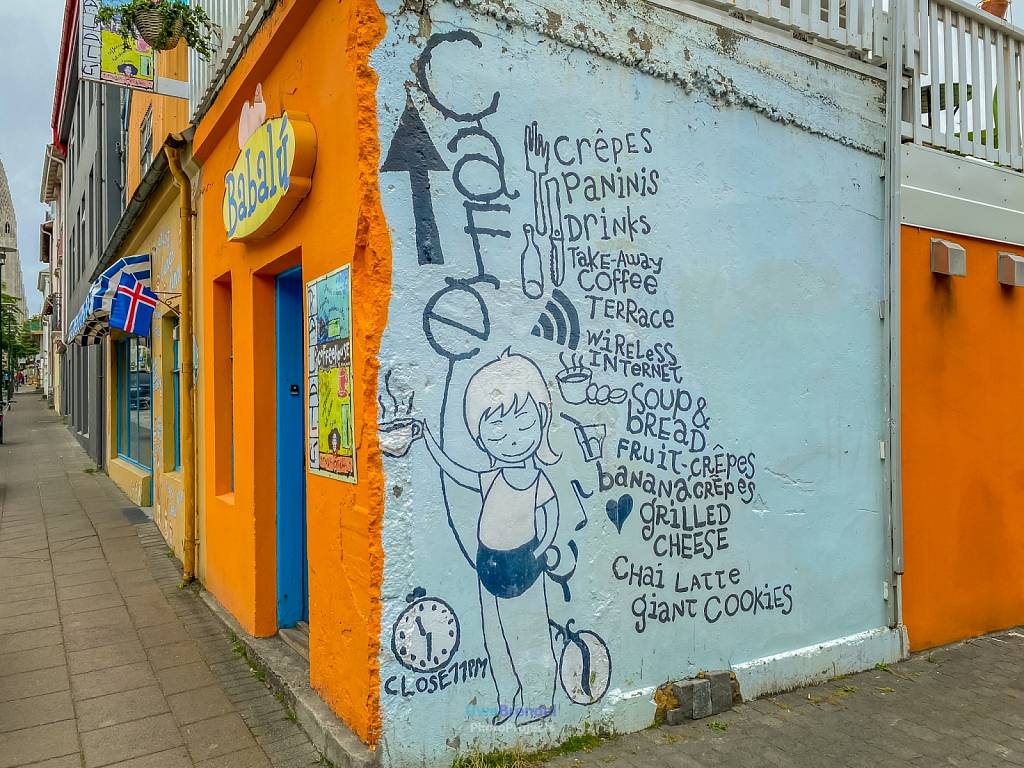 Babalú
Café
CRÊPES
PANINIS
DRINKS
TAKE-AWAY
COFFEE
TERRACE
WIRELESS
INTERNET
SOUP &
BREAD
FRUIT-CRÊPES
BANANACRÊPES
GRILLED
CHEESE
CHAI LATTE
GIANT COOKIES
CLOSE 11PM
COFFEEHOUSE